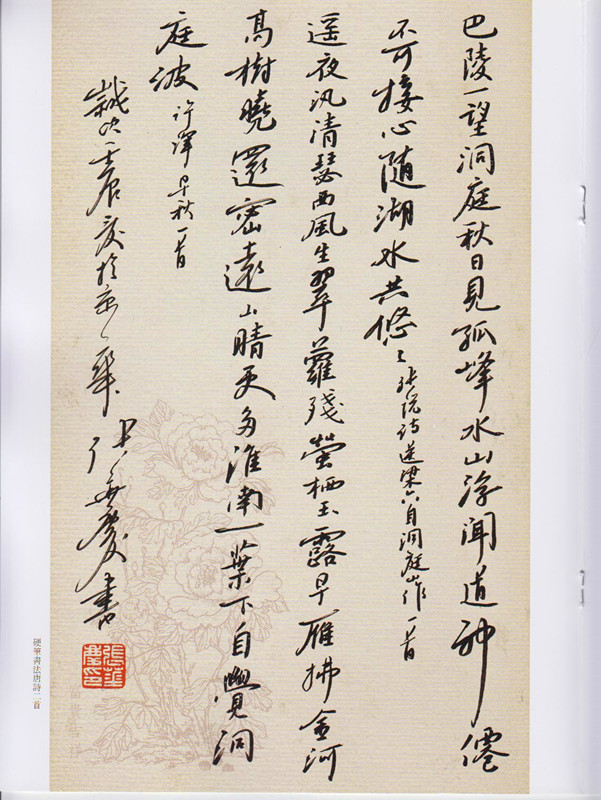 巴陵一望洞庭秋日見孤峰水山浮聞道神僊
不可接心随湖水共悠々 张说诗送梁六自洞庭山作一首
遥夜汎清瑟西風生翠蘿殘螢栖玉露早雁拂金河
高樹曉還密遠山晴更多淮南一葉下自覺洞
庭波 许浑早秋一首
歲次壬辰夏於京華 张華慶書
張華慶印
硬筆書法唐詩二首